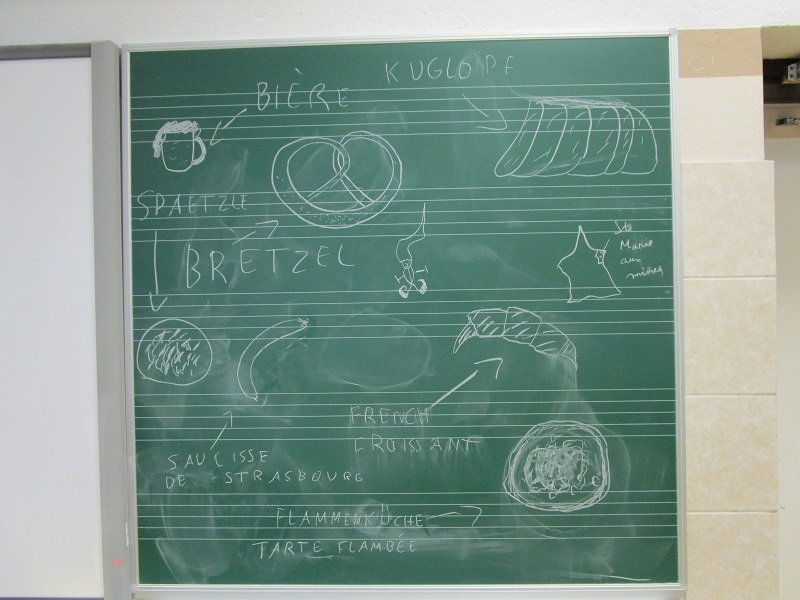 KUGLOPF
BIÈRE
SPAETZLE
BRETZEL
Ste
Marie
aux
mines
FRENCH
CROISSANT
SAUCISSE
DE STRASBOURG
FLAMMENKÜCHE
TARTE FLAMBÉE